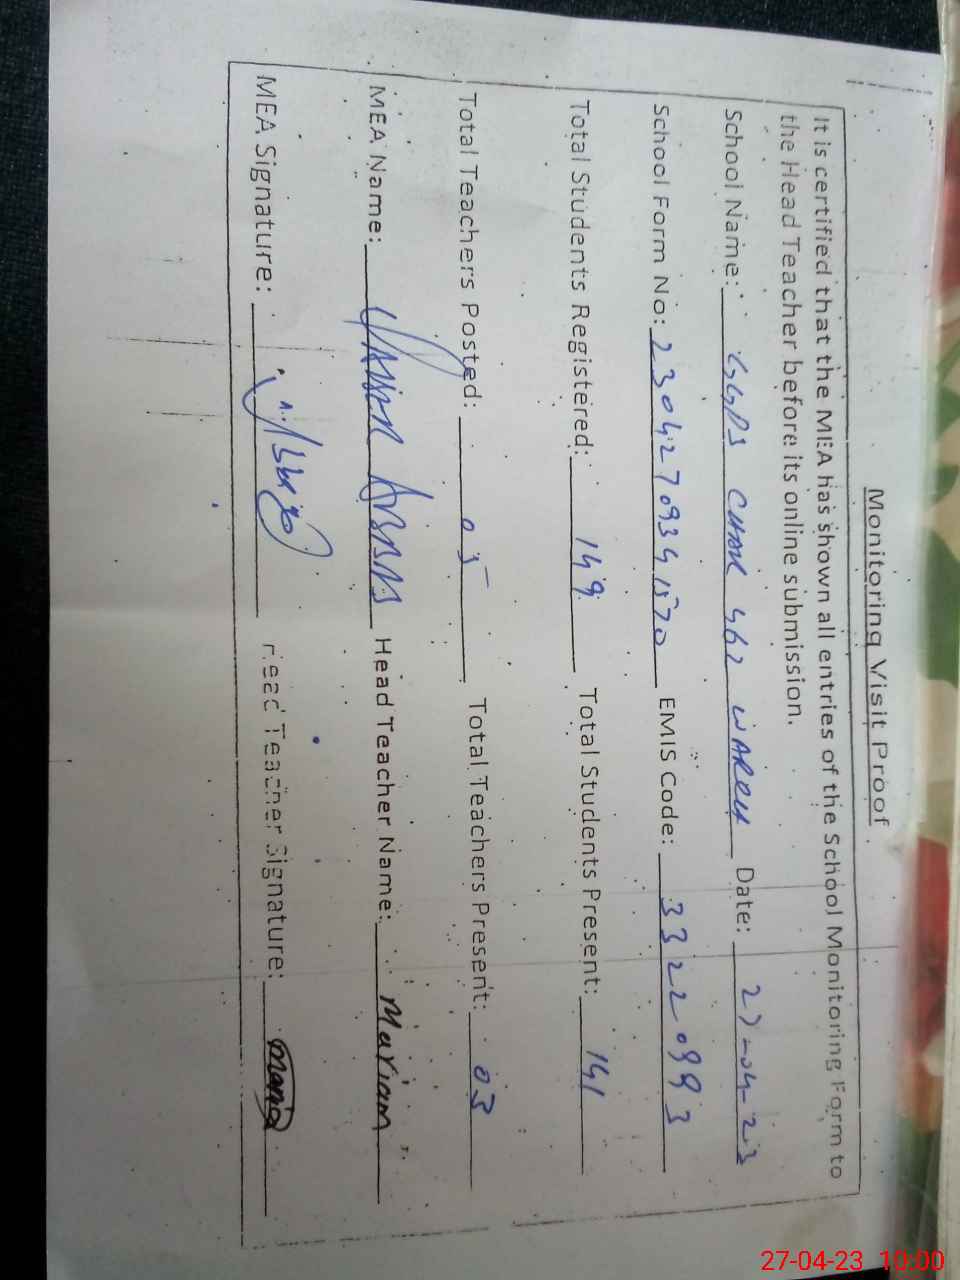 Monitoring Visit Proof
It is certified that the MEA has shown all entries of the School Monitoring Form to
the Head Teacher before its online submission.
School Name: GGPS CHAK 462 Date: 27-04-23
School Form No: 23042709341570 EMIS Code: 33220993
Total Students Registered: 149 Total Students Present: 141
Total Teachers Posted: 05 Total Teachers Present: 03
MEA Name: Head Teacher Name: Mariam
MEA Signature: Head Teacher Signature:
27-04-23 10:00